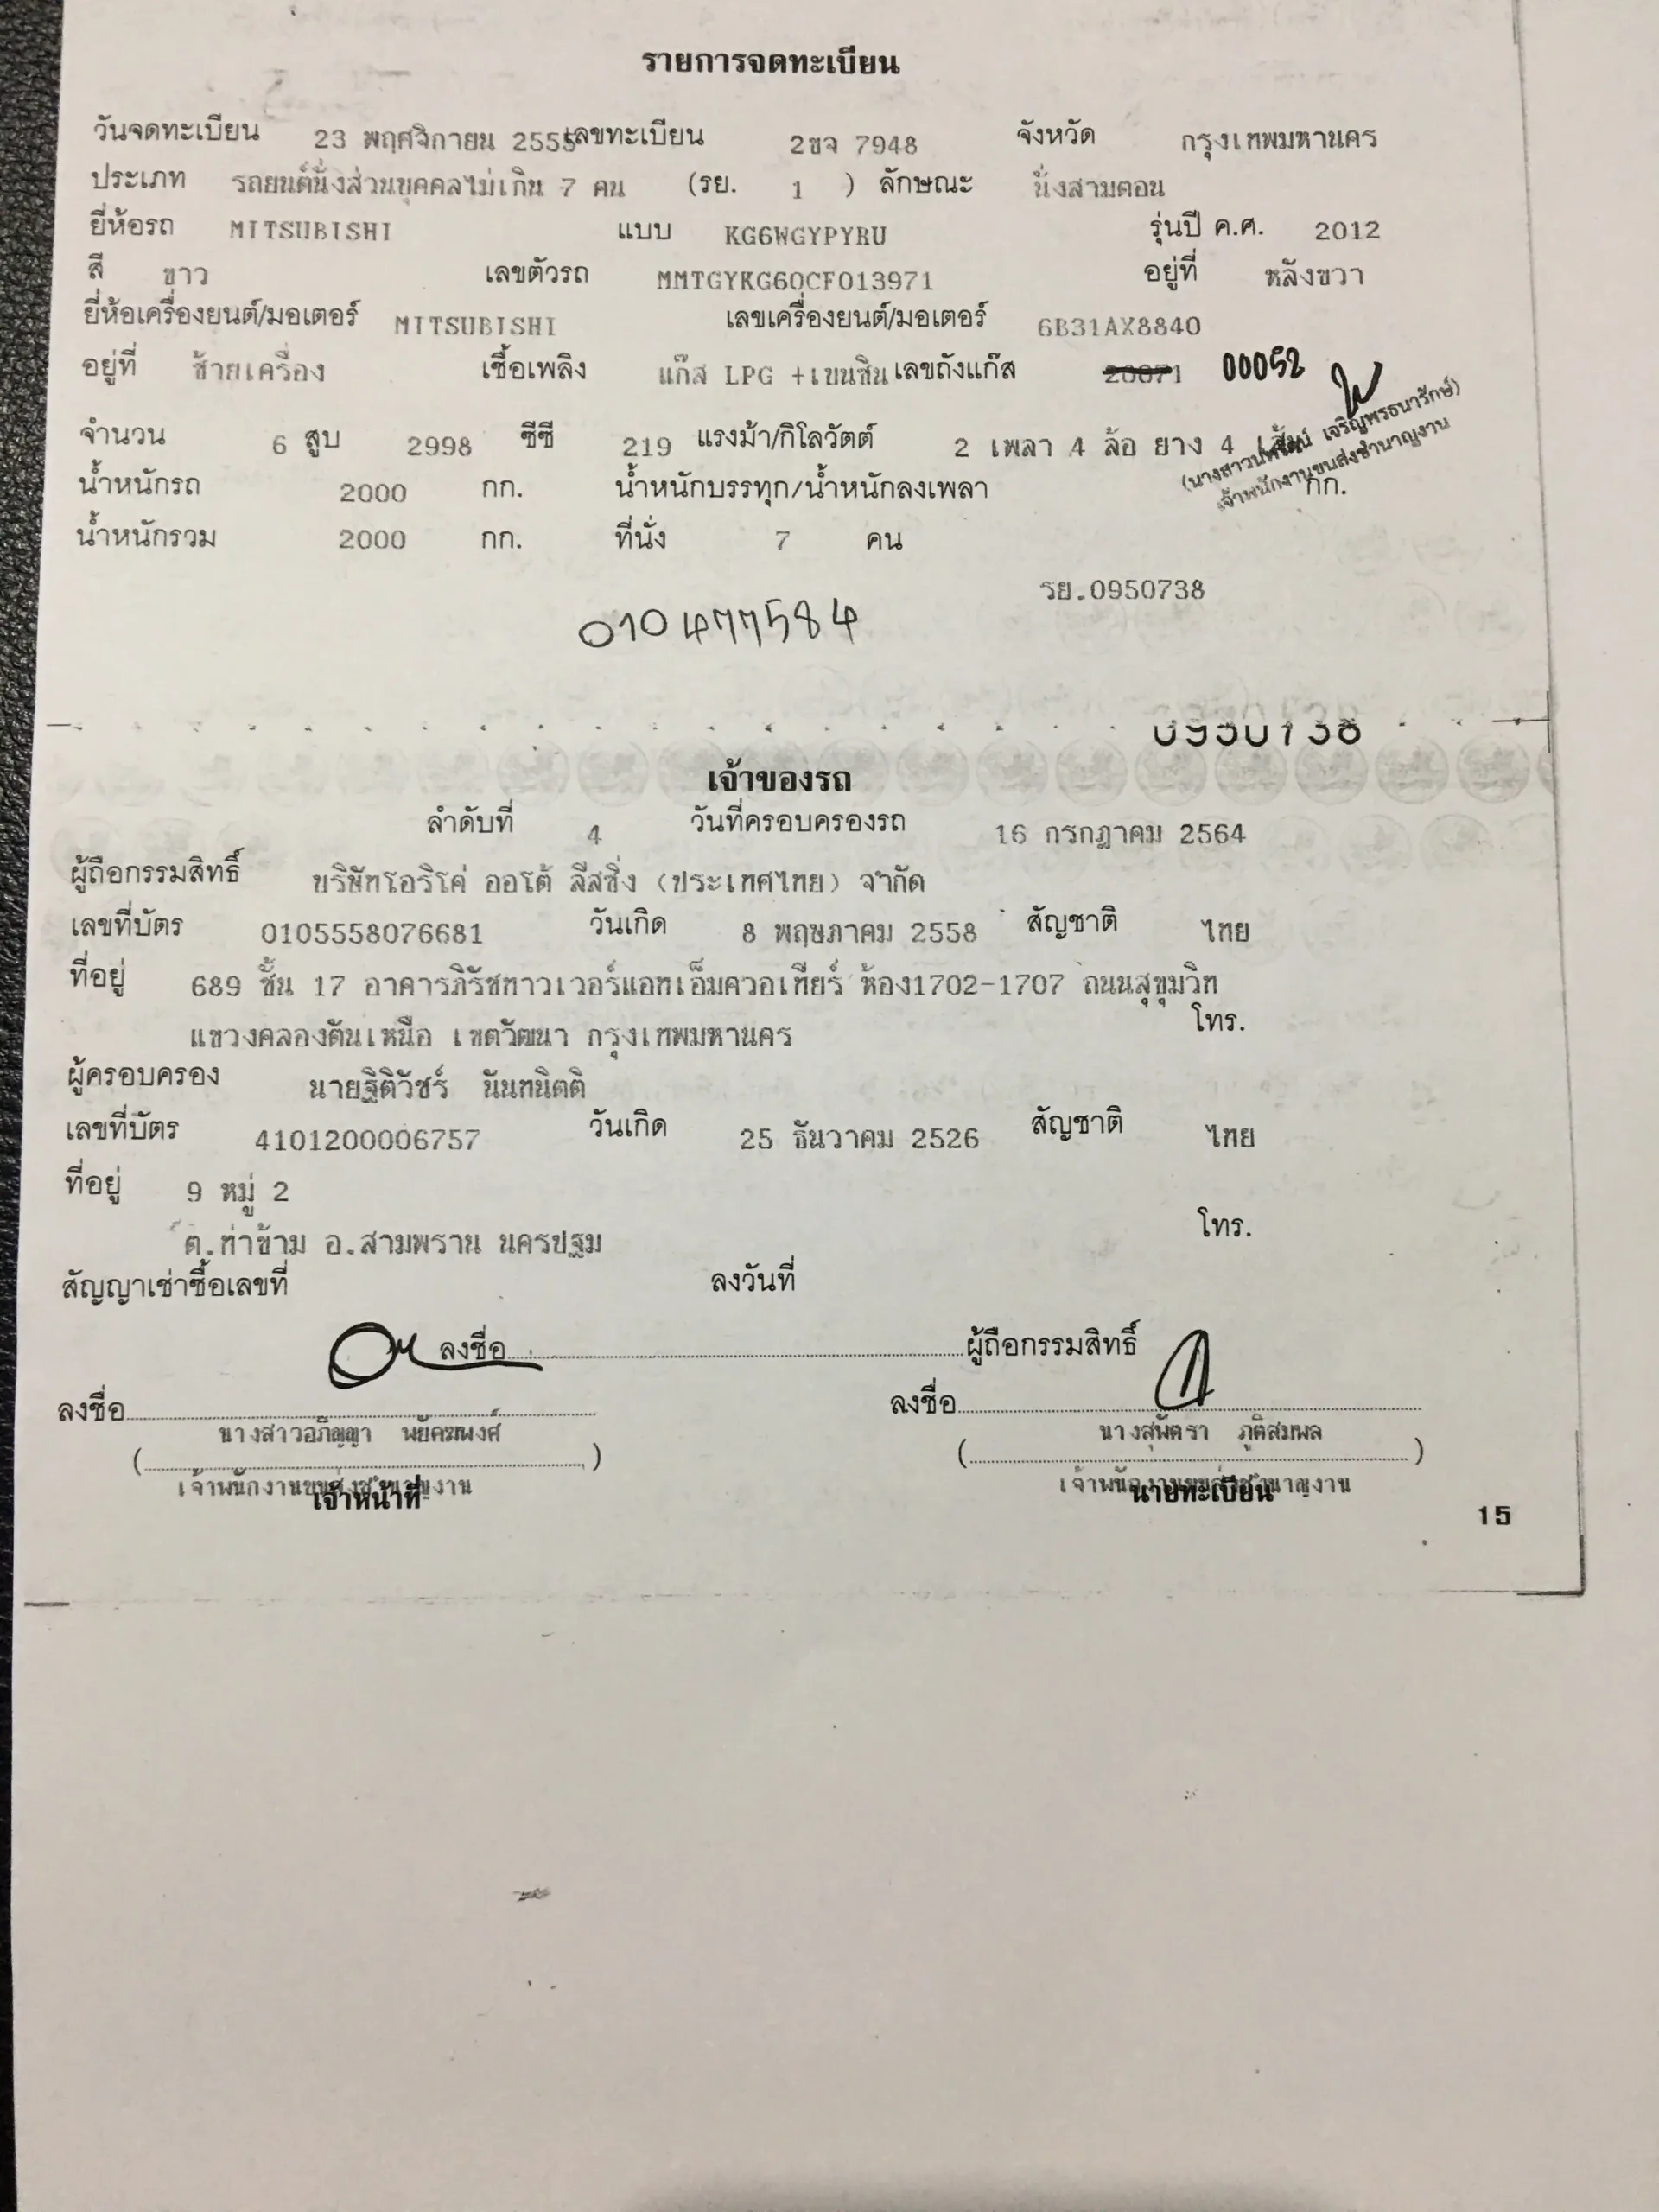 รายการจดทะเบียน
วันจดทะเบียน 23 พฤศจิกายน 2555 เลขทะเบียน 2ขจ 7948 จังหวัด กรุงเทพมหานคร
ประเภท รถยนต์นั่งส่วนบุคคลไม่เกิน 7 คน (รย. 1 ) ลักษณะ นั่งสามตอน
ยี่ห้อรถ MITSUBISHI แบบ KG6WGYPYRU รุ่นปี ค.ศ. 2012
สี ขาว เลขตัวรถ MMTGYKG60CF013971 อยู่ที่ หลังขวา
ยี่ห้อเครื่องยนต์/มอเตอร์ MITSUBISHI เลขเครื่องยนต์/มอเตอร์ 6B31AX8840
อยู่ที่ ซ้ายเครื่อง เชื้อเพลิง แก๊ส LPG +เบนซิน เลขถังแก๊ส 00052
จำนวน 6 สูบ 2998 ซีซี 219 แรงม้า/กิโลวัตต์ 2 เพลา 4 ล้อ ยาง 4 เส้น
(นางสาว เจริญพรธนารักษ์)
เจ้าพนักงานขนส่งชำนาญงาน
น้ำหนักรถ 2000 กก. น้ำหนักบรรทุก/น้ำหนักลงเพลา กก.
น้ำหนักรวม 2000 กก. ที่นั่ง 7 คน
รย.0950738
010477584
เจ้าของรถ
ลำดับที่ 4 วันที่ครอบครองรถ 16 กรกฎาคม 2564
ผู้ถือกรรมสิทธิ์ บริษัทโอริโค่ ออโต้ ลีสซิ่ง (ประเทศไทย) จำกัด
เลขที่บัตร 0105558076681 วันเกิด 8 พฤษภาคม 2558 สัญชาติ ไทย
ที่อยู่ 689 ชั้น 17 อาคารภิรัชทาวเวอร์แอทเอ็มควอเทียร์ ห้อง1702-1707 ถนนสุขุมวิท
แขวงคลองตันเหนือ เขตวัฒนา กรุงเทพมหานคร โทร.
ผู้ครอบครอง นายฐิติวัชร์ นันทนิตติ
เลขที่บัตร 4101200006757 วันเกิด 25 ธันวาคม 2526 สัญชาติ ไทย
ที่อยู่ 9 หมู่ 2
ต.ท่าข้าม อ.สามพราน นครปฐม โทร.
สัญญาเช่าซื้อเลขที่ ลงวันที่
ลงชื่อ ผู้ถือกรรมสิทธิ์
ลงชื่อ ลงชื่อ
นางสาวอภิญญา พยัคฆพงศ์ นางสุพัตรา ภูติสมพล
( ) ( )
เจ้าพนักงานขนส่งชำนาญงาน เจ้าพนักงานขนส่งชำนาญงาน
เจ้าหน้าที่ นายทะเบียน
15